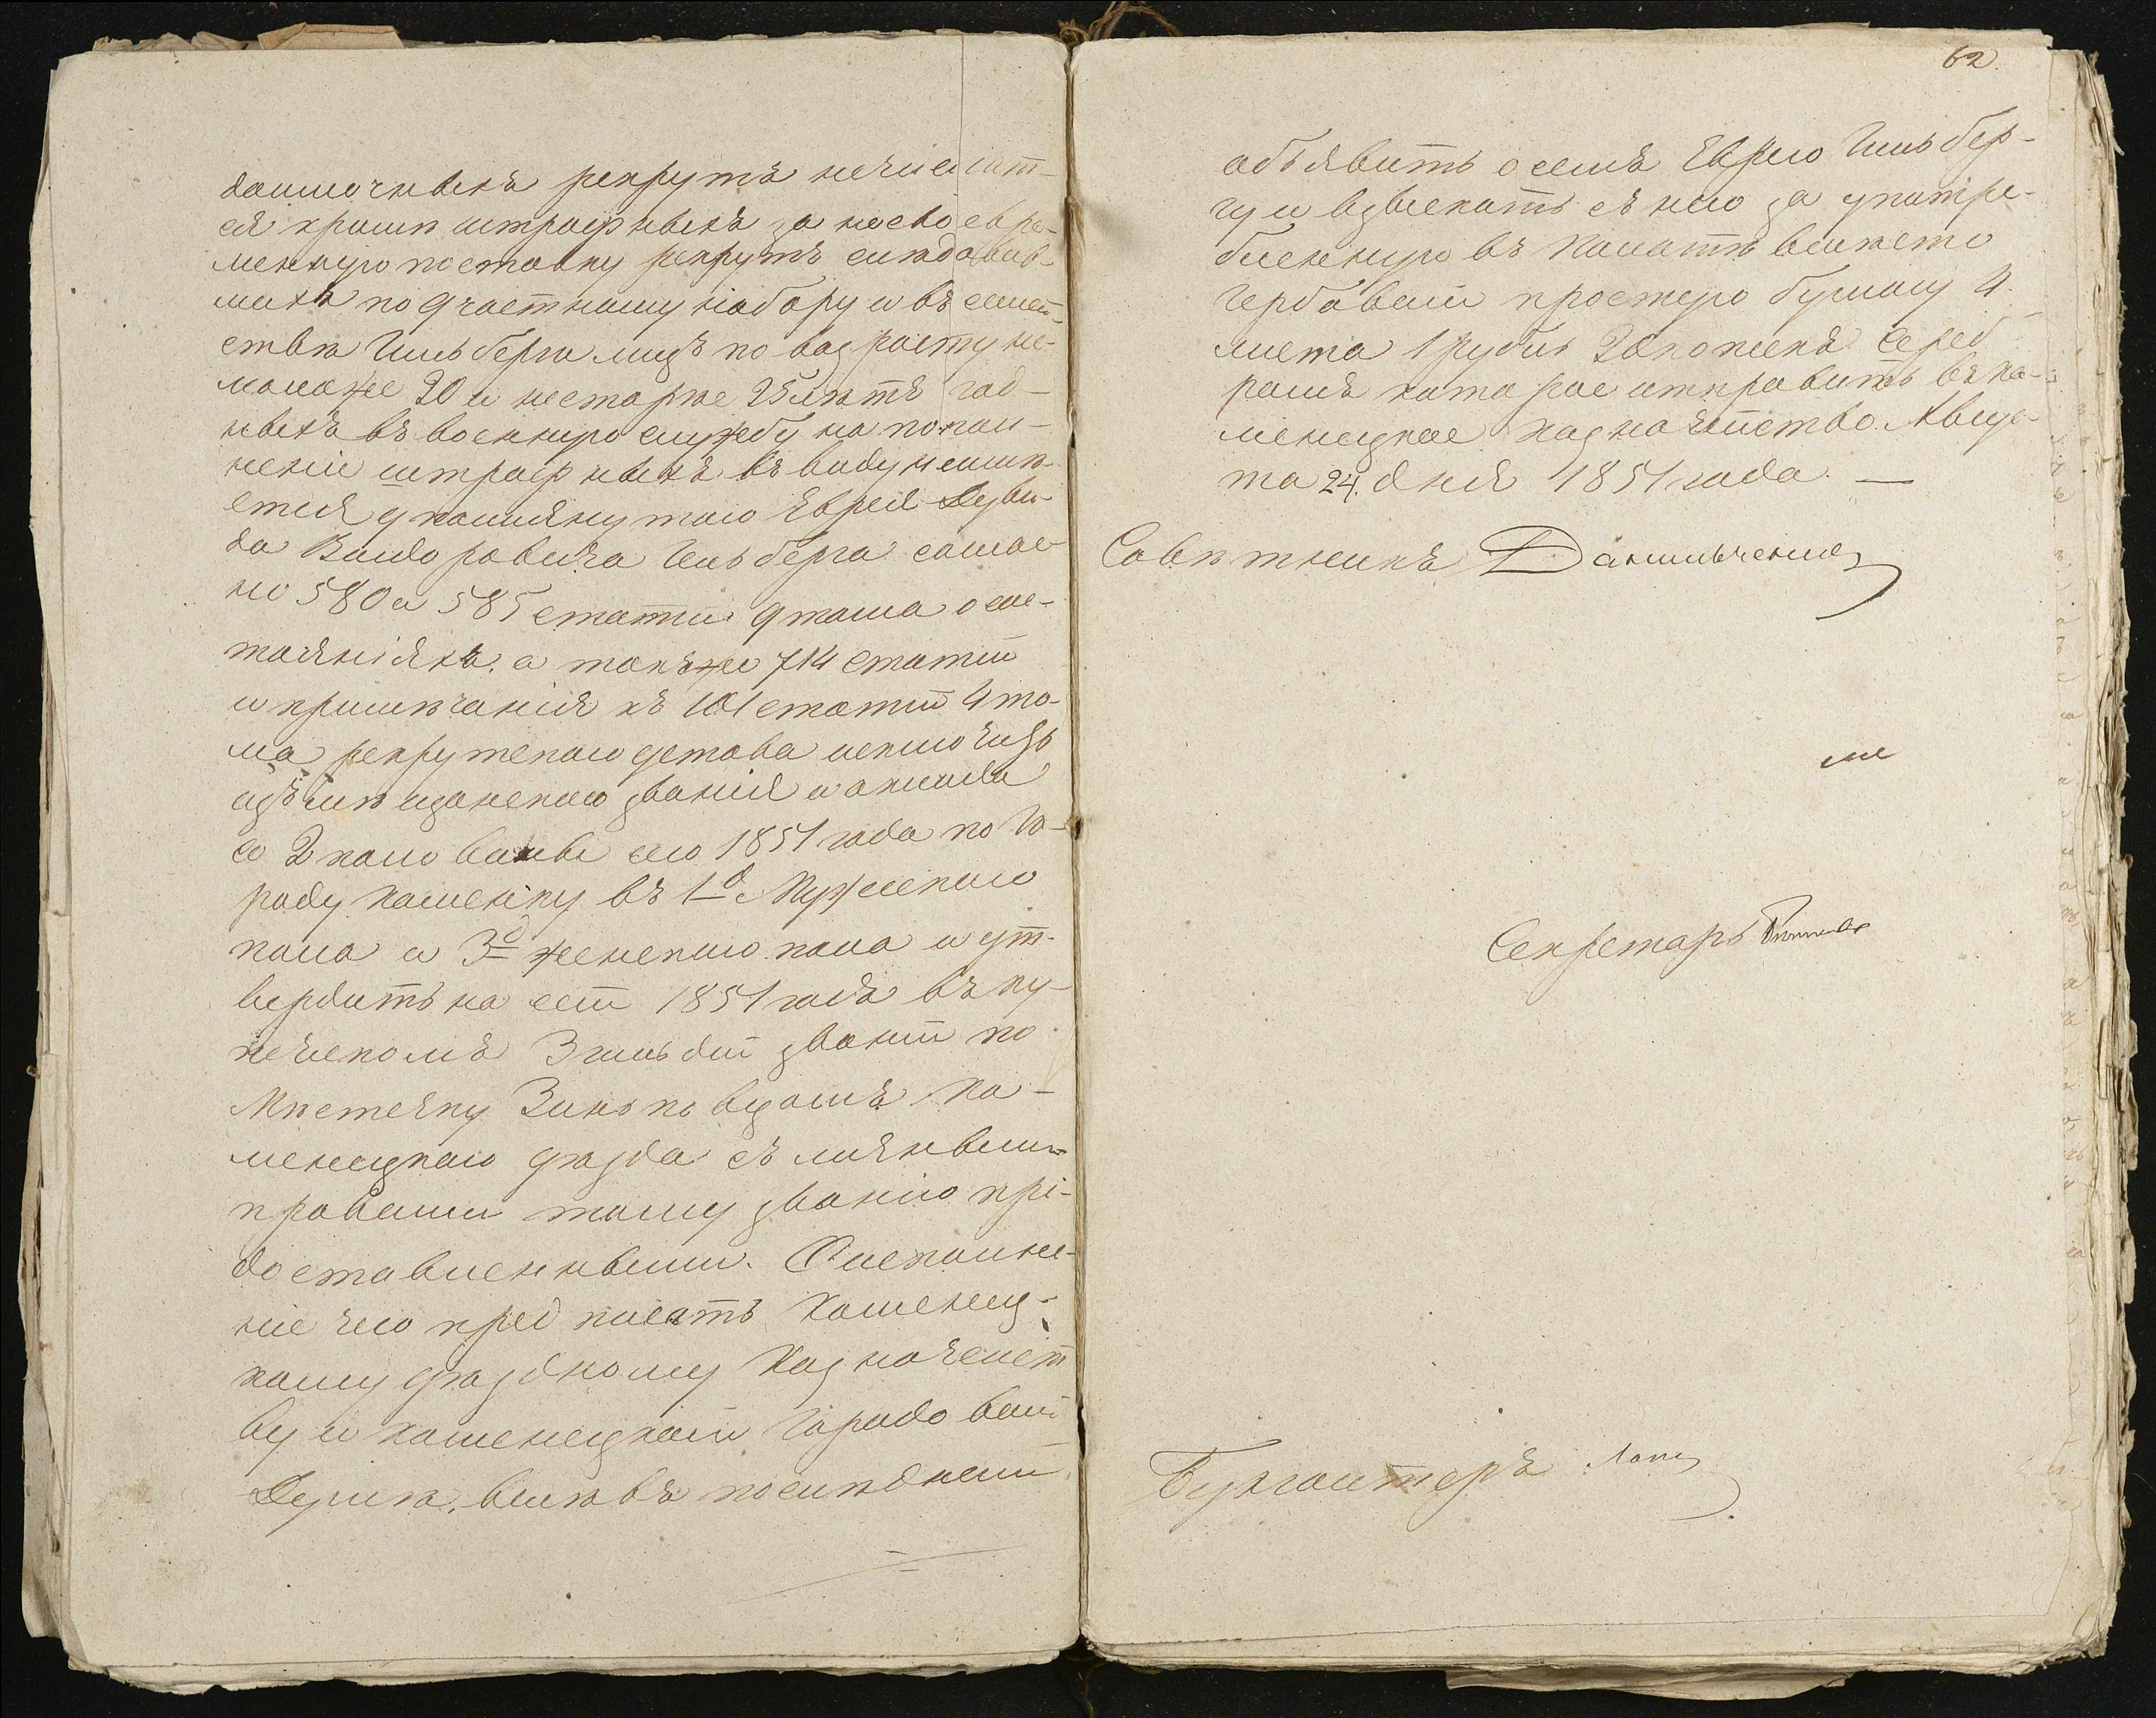 доимочныхъ рекрутъ нечислит-
ся кромѣ штрафныхъ за несвоевре-
менную поставку рекрутъ слѣдовав-
шихъ по 9 частному набору и въ семей-
ствѣ Гильберга лицъ по возрасту не-
моложе 20 и нестарѣе 25 лѣтъ год-
ныхъ въ военную службу на попол-
неніи штрафныхъ въ виду неимѣ-
ется упомянутаго Еврея Дуви-
да Велфровича Гильберга соглас-
но 580 и 585 статьи 9 тома о сос-
тояніяхъ, а также 714 статьи
и примѣчанія къ 101 статьи 4 то-
ма рекрутскаго устава исключить
изъ мѣщанскаго званія и оклада
со 2 половины сего 1851 года по Го-
роду Каменцу въ 1й Мужескаго
пола и 3й женскаго пола и ут-
вердить на сей 1851 годъ въ ку-
печескомъ 3 гильдіи званіи по
Мѣстечку Зиньковцамъ Ка-
менецкаго уѣзда съ личными
правами тому званію прі-
доставленными. О исполне-
ніе чего предписать Каменец-
кому уѣздному Казначейст
ву и Каменецкой Городовой
Думѣ, велѣвъ послѣдней
62
объявить о семъ Еврею Гильбер-
гу и взыскать съ него за употре-
бленную въ Палатѣ вмѣсто
Гербовой простую бумагу 4
листа 1 рубль 20 копѣекъ сереб
ромъ которое отправить въ Ка-
менецкое Казначейство. Авгус
та 24. дня 1851 года. —
Совѣтникъ Данильченко
Секретарь
Бухгалтеръ